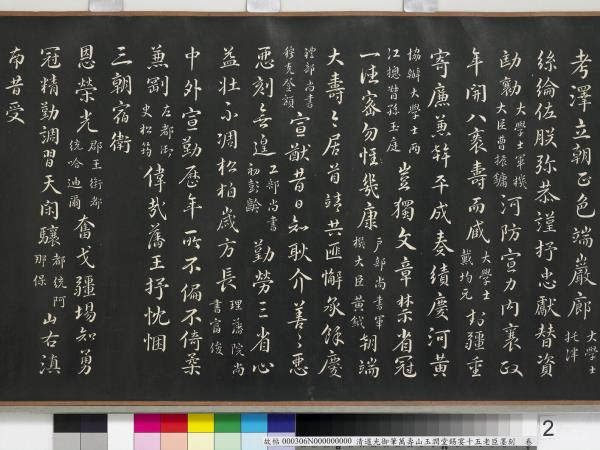 考澤立朝正色端嚴廊 大學士托津
絲綸佐朕弥恭謹抒忠獻替資
勛勷 大學士軍機大臣曹振鏞 河防宣力內襄政
年開八袠壽而臧 大學士戴均元 封疆重
寄廉兼幹平成奏績慶河黃
協辦大學士兩江總督孫玉庭 豈獨文章禁省冠
一渖密勿惟幾康 户部尚書軍機大臣黄鉞 朝端
大壽之居首靖共匪懈承餘慶
禮部尚書穆克登額 宣猷昔日知耿介善善惡
惡刻無遑 工部尚書初彭齡 勤勞三省心
益壯不凋松柏歲方長 理藩院尚書富俊
中外宣勤歷年所不偏不倚柔
兼剛 左都御史松筠 偉哉舊王抒忱悃
三朝宿衛
恩榮光 郡王銜都統哈迪爾 奮戈疆場知勇
冠精勤調習天閑驤 都統阿那保 山右滇
南昔受
2
故帖 000306N000000000 清道光御筆萬壽山玉瀾堂錫宴十五老臣墨刻 卷